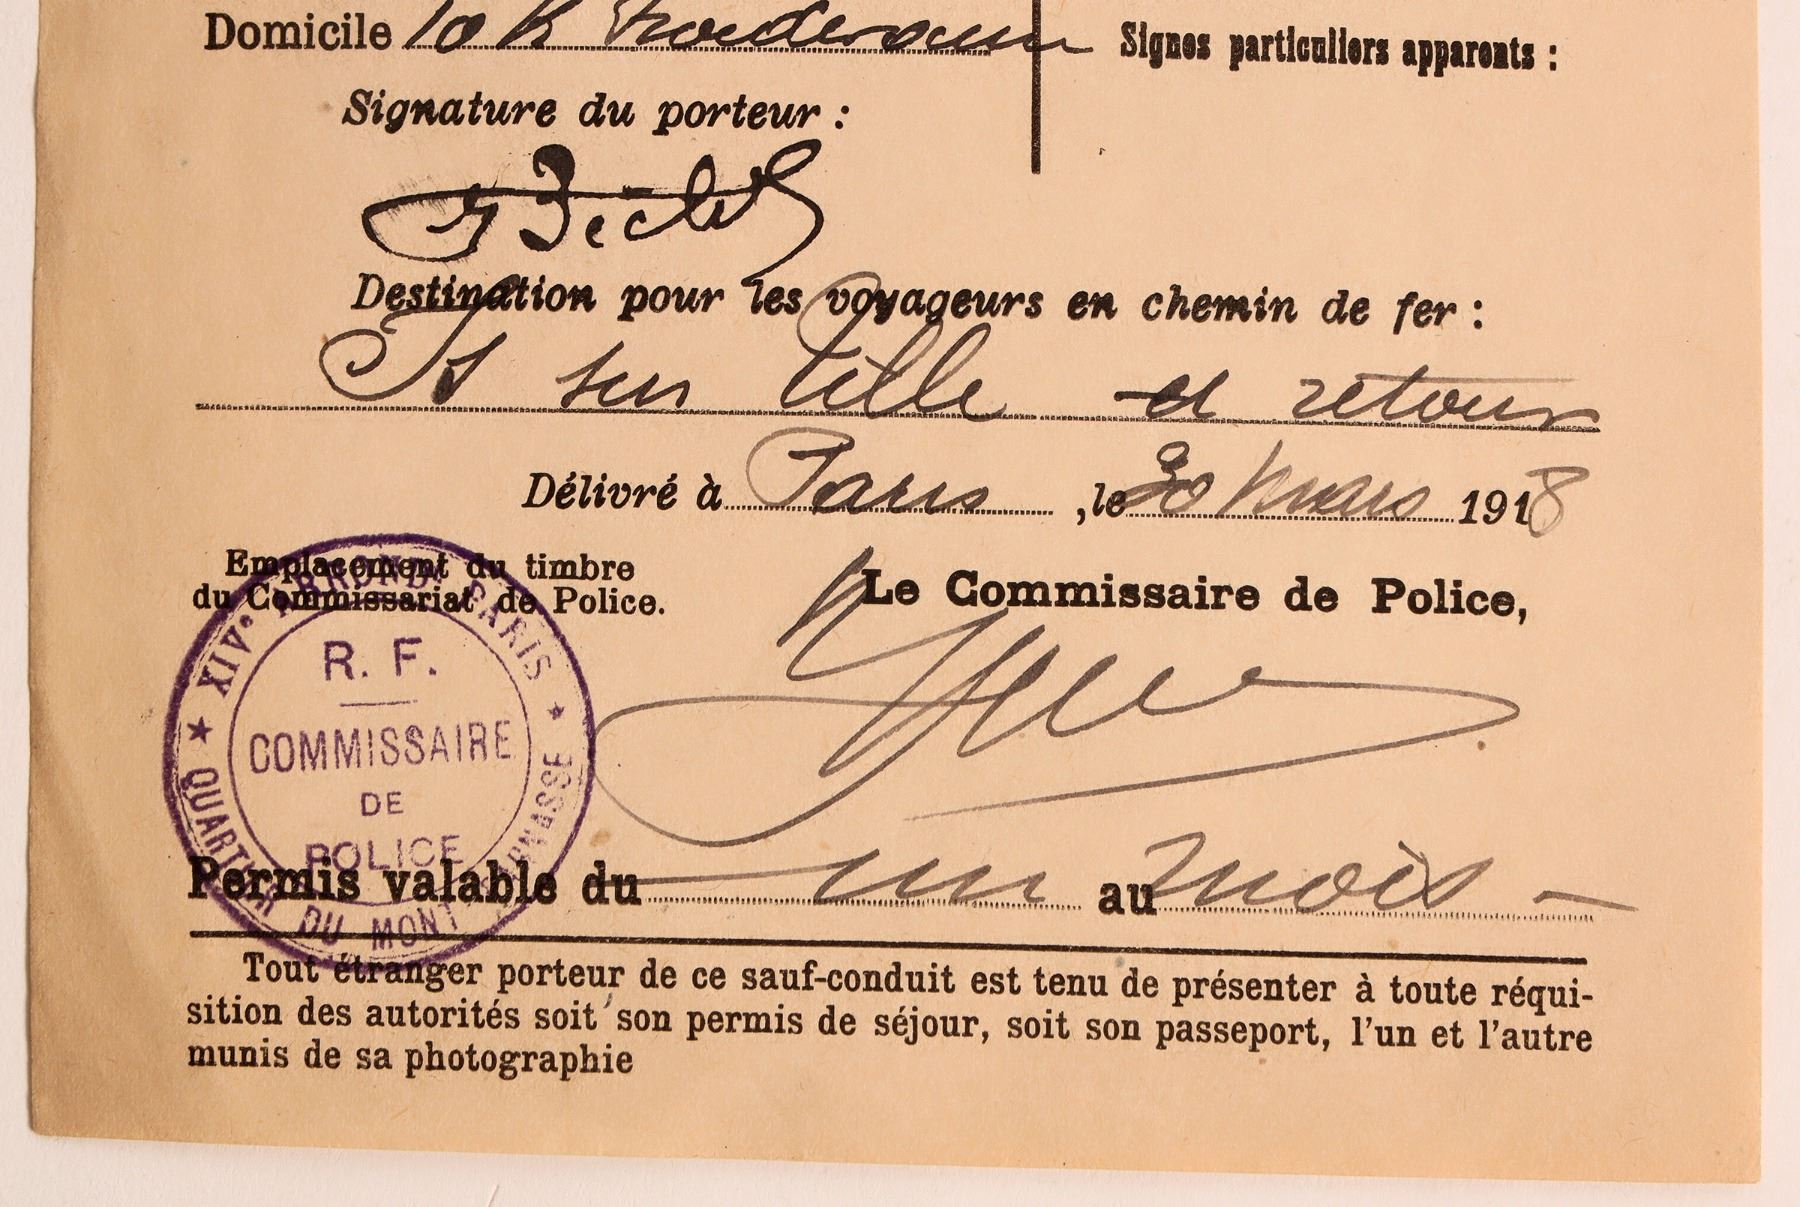 Domicile 10 R
Signes particuliers apparents :
Signature du porteur :
Destination pour les voyageurs en chemin de fer :
Is sur Tille et retour
Délivré à Paris, le 30 Mars 1918
Emplacement du timbre
du Commissariat de Police.
Le Commissaire de Police,
XIVe ARRONDt PARIS
R. F.
COMMISSAIRE
DE
POLICE
QUARTIER DU MONTPARNASSE
Permis valable du un au mois -
Tout étranger porteur de ce sauf-conduit est tenu de présenter à toute réqui-
sition des autorités soit son permis de séjour, soit son passeport, l'un et l'autre
munis de sa photographie